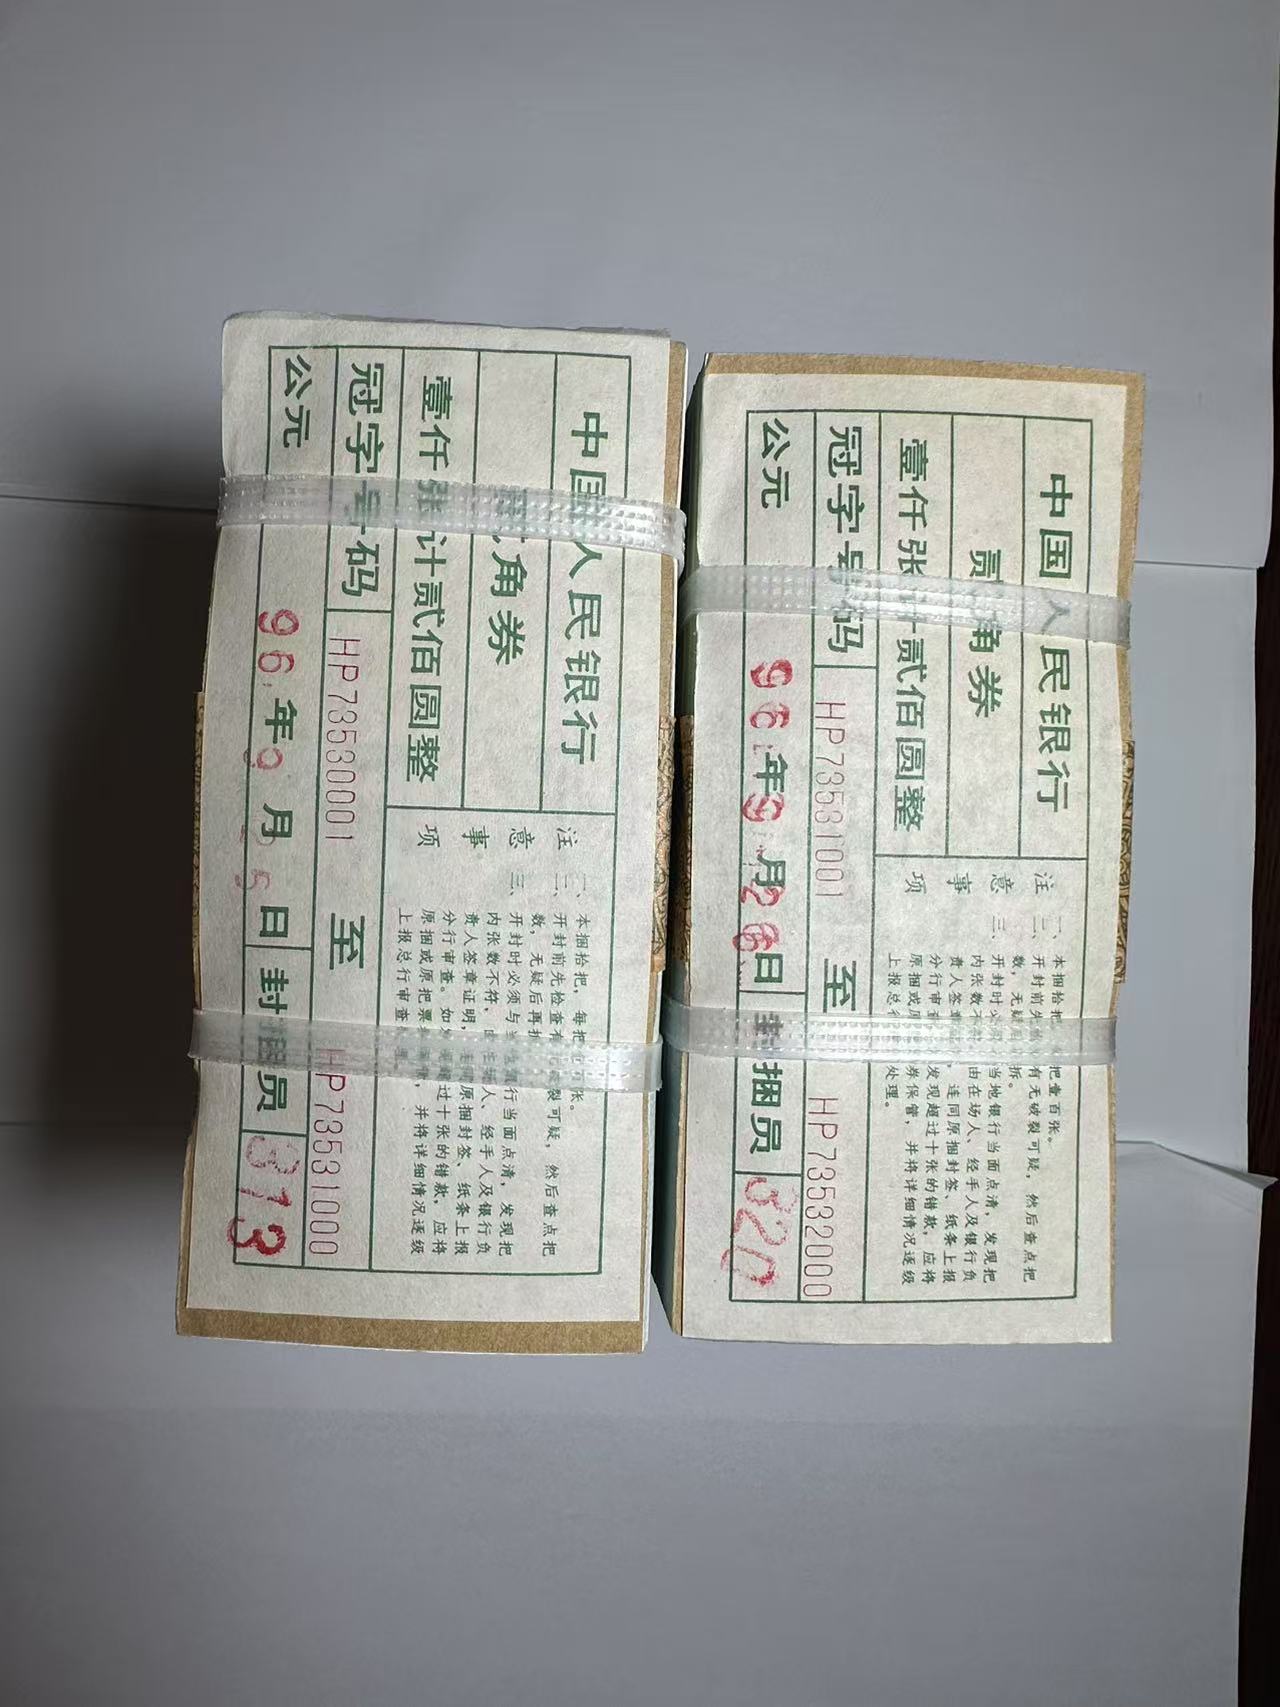 中国人民银行
角券
壹仟张计贰佰圆整
冠字号码 HP73530001 至 HP73531000
公元 96年9月 5日 封捆员 313
注意事项
一、本捆拾把，每把
二、开封前先检查有 破裂可疑，然后查点把
数，无疑后再拆
三、开封时必须与当 银行当面点清，发现把
内张数不符，由在场人、经手人及银行负
责人签章证明，连同原捆封签、纸条上报
分行审查。如发现超过十张的错款，应将
原捆或原把票券保管，并将详细情况逐级
上报总行审查处理。
中国人民银行
贰角券
壹仟张计贰佰圆整
冠字号码 HP73531001 至 HP73532000
公元 96年9月26日 封捆员 320
注意事项
一、本捆拾把 把壹百张。
二、开封前先检 有无破裂可疑，然后查点把
数，无疑后再拆。
三、开封时必须 当地银行当面点清，发现把
内张数不符，由在场人、经手人及银行负
责人签章证明，连同原捆封签、纸条上报
分行审查。如发现超过十张的错款，应将
原捆或原把票券保管，并将详细情况逐级
上报总行审查处理。